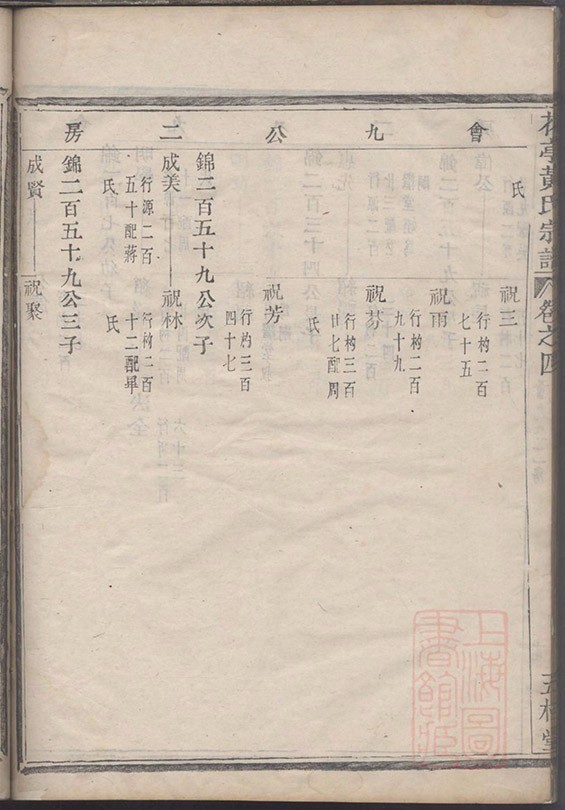 黃氏宗譜
卷之四
會九公二房
氏
祝三
行杓二百
七十五
祝雨
行杓二百
九十九
祝芬
行杓三百
廿七配周
氏
祝芳
行杓三百
四十七
錦二百五十九公次子
成美
行源二百
五十配蔣
氏
祝林
行杓二百
十二配畢
氏
錦二百五十九公三子
成賢
祝聚
上海圖
書館藏